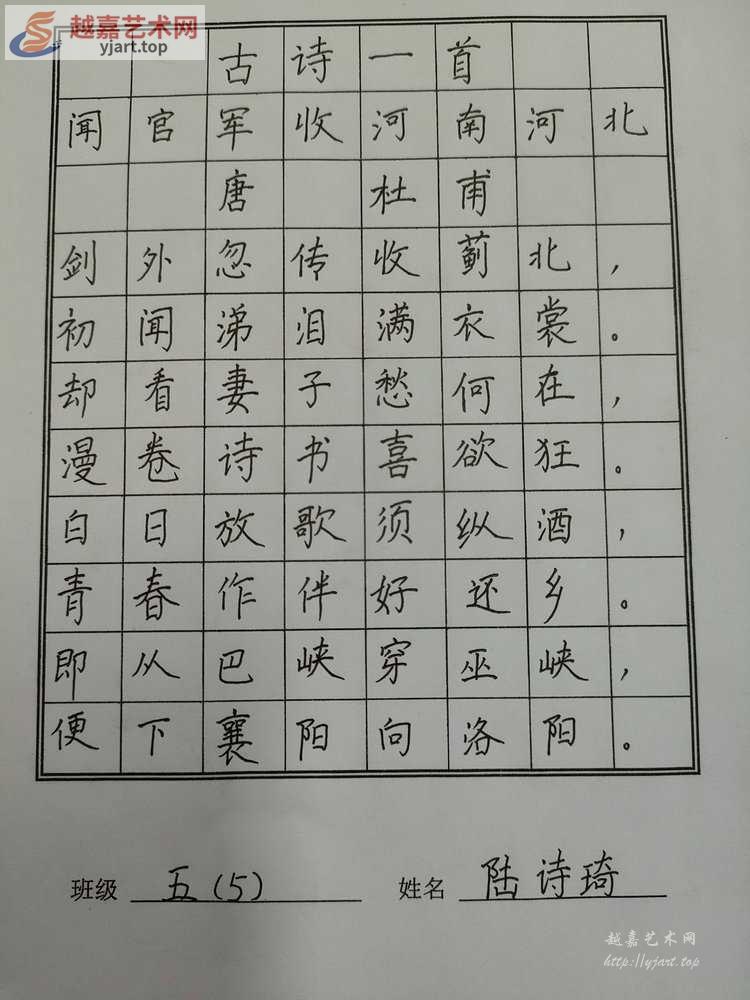 越嘉艺术网
yjart.top
古诗一首
闻官军收河南河北
唐 杜甫
剑外忽传收蓟北，
初闻涕泪满衣裳。
却看妻子愁何在，
漫卷诗书喜欲狂。
白日放歌须纵酒，
青春作伴好还乡。
即从巴峡穿巫峡，
便下襄阳向洛阳。
班级 五(5) 姓名 陆诗琦
越嘉艺术网
http://yjart.top